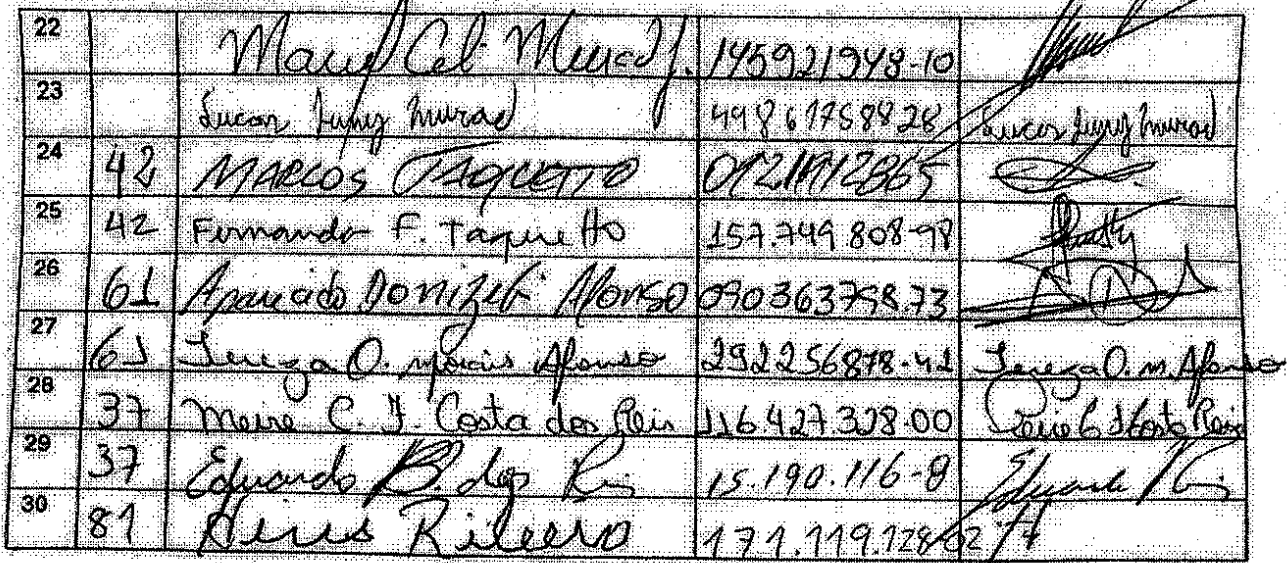 22 145921948-10
23 Lucas Murad 498 617588 28 Lucas Murad
24 42 MARCOS TAQUETTO
25 42 Fernando F. Taquetto 157.749 808-98
26 61 Aparecido Donizeti Afonso 090363798.73
27 61 Tereza O. morais Afonso 292256878-41 Tereza O. m. Afonso
28 37 Meire C. J. Costa dos Reis 116.427.328.00
29 37 Eduardo B. dos Reis 15.190.116-8 Eduardo Reis
30 81 Ribeiro 171.119.128-02